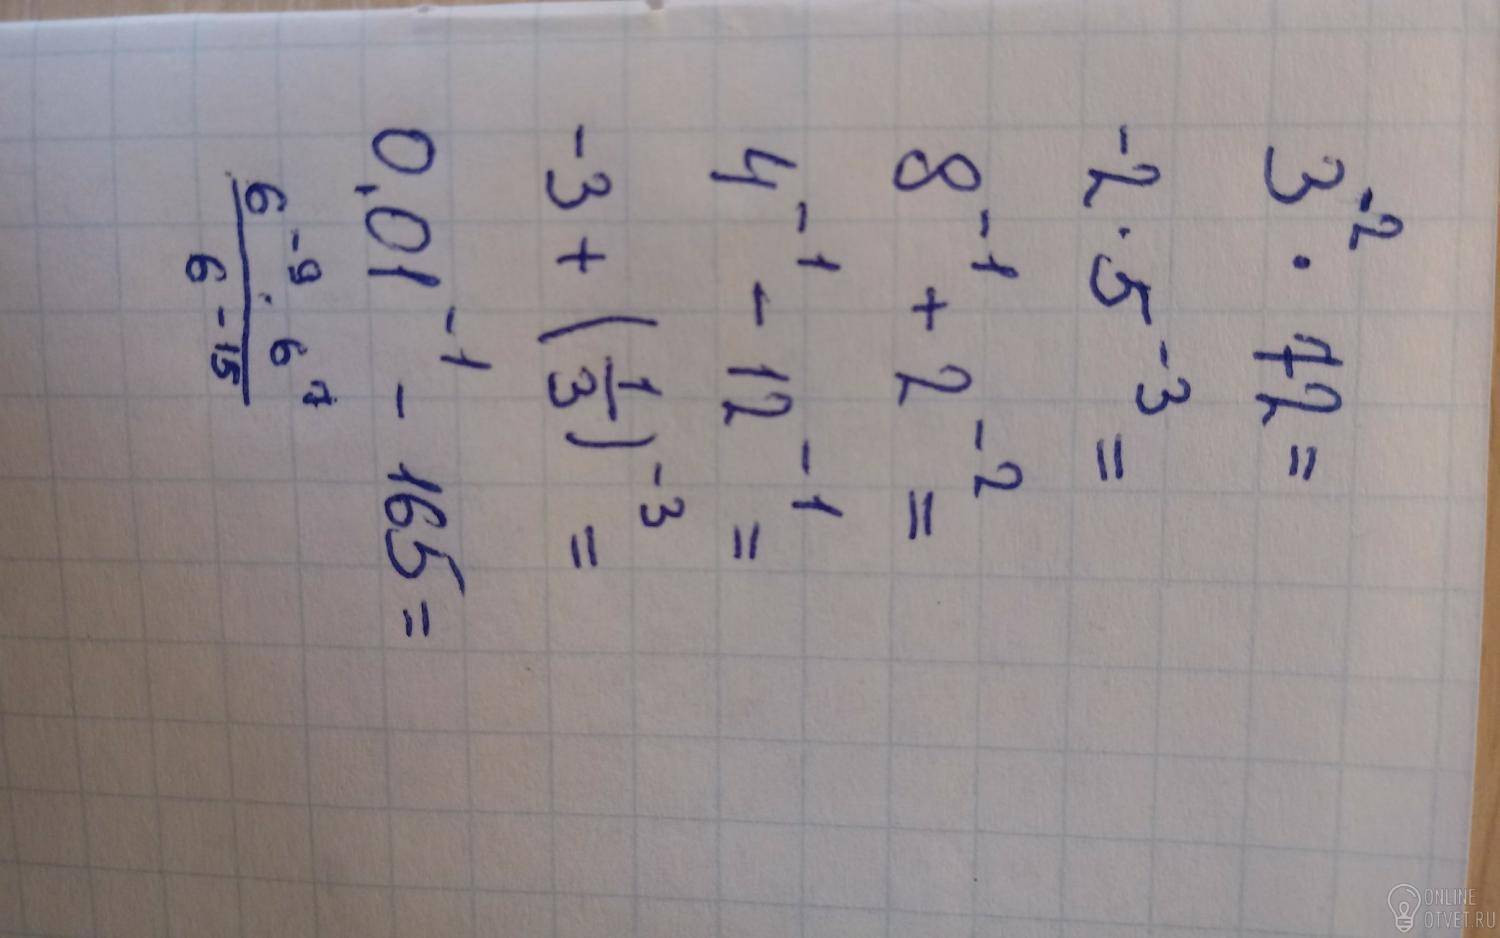 3⁻² · 12 =
-2 · 5⁻³ =
8⁻¹ + 2⁻² =
4⁻¹ - 12⁻¹ =
-3 + (1/3)⁻³ =
0,01⁻¹ - 165 =
6⁻⁹ · 6⁷
6⁻¹⁵
ONLINE
OTVET.RU